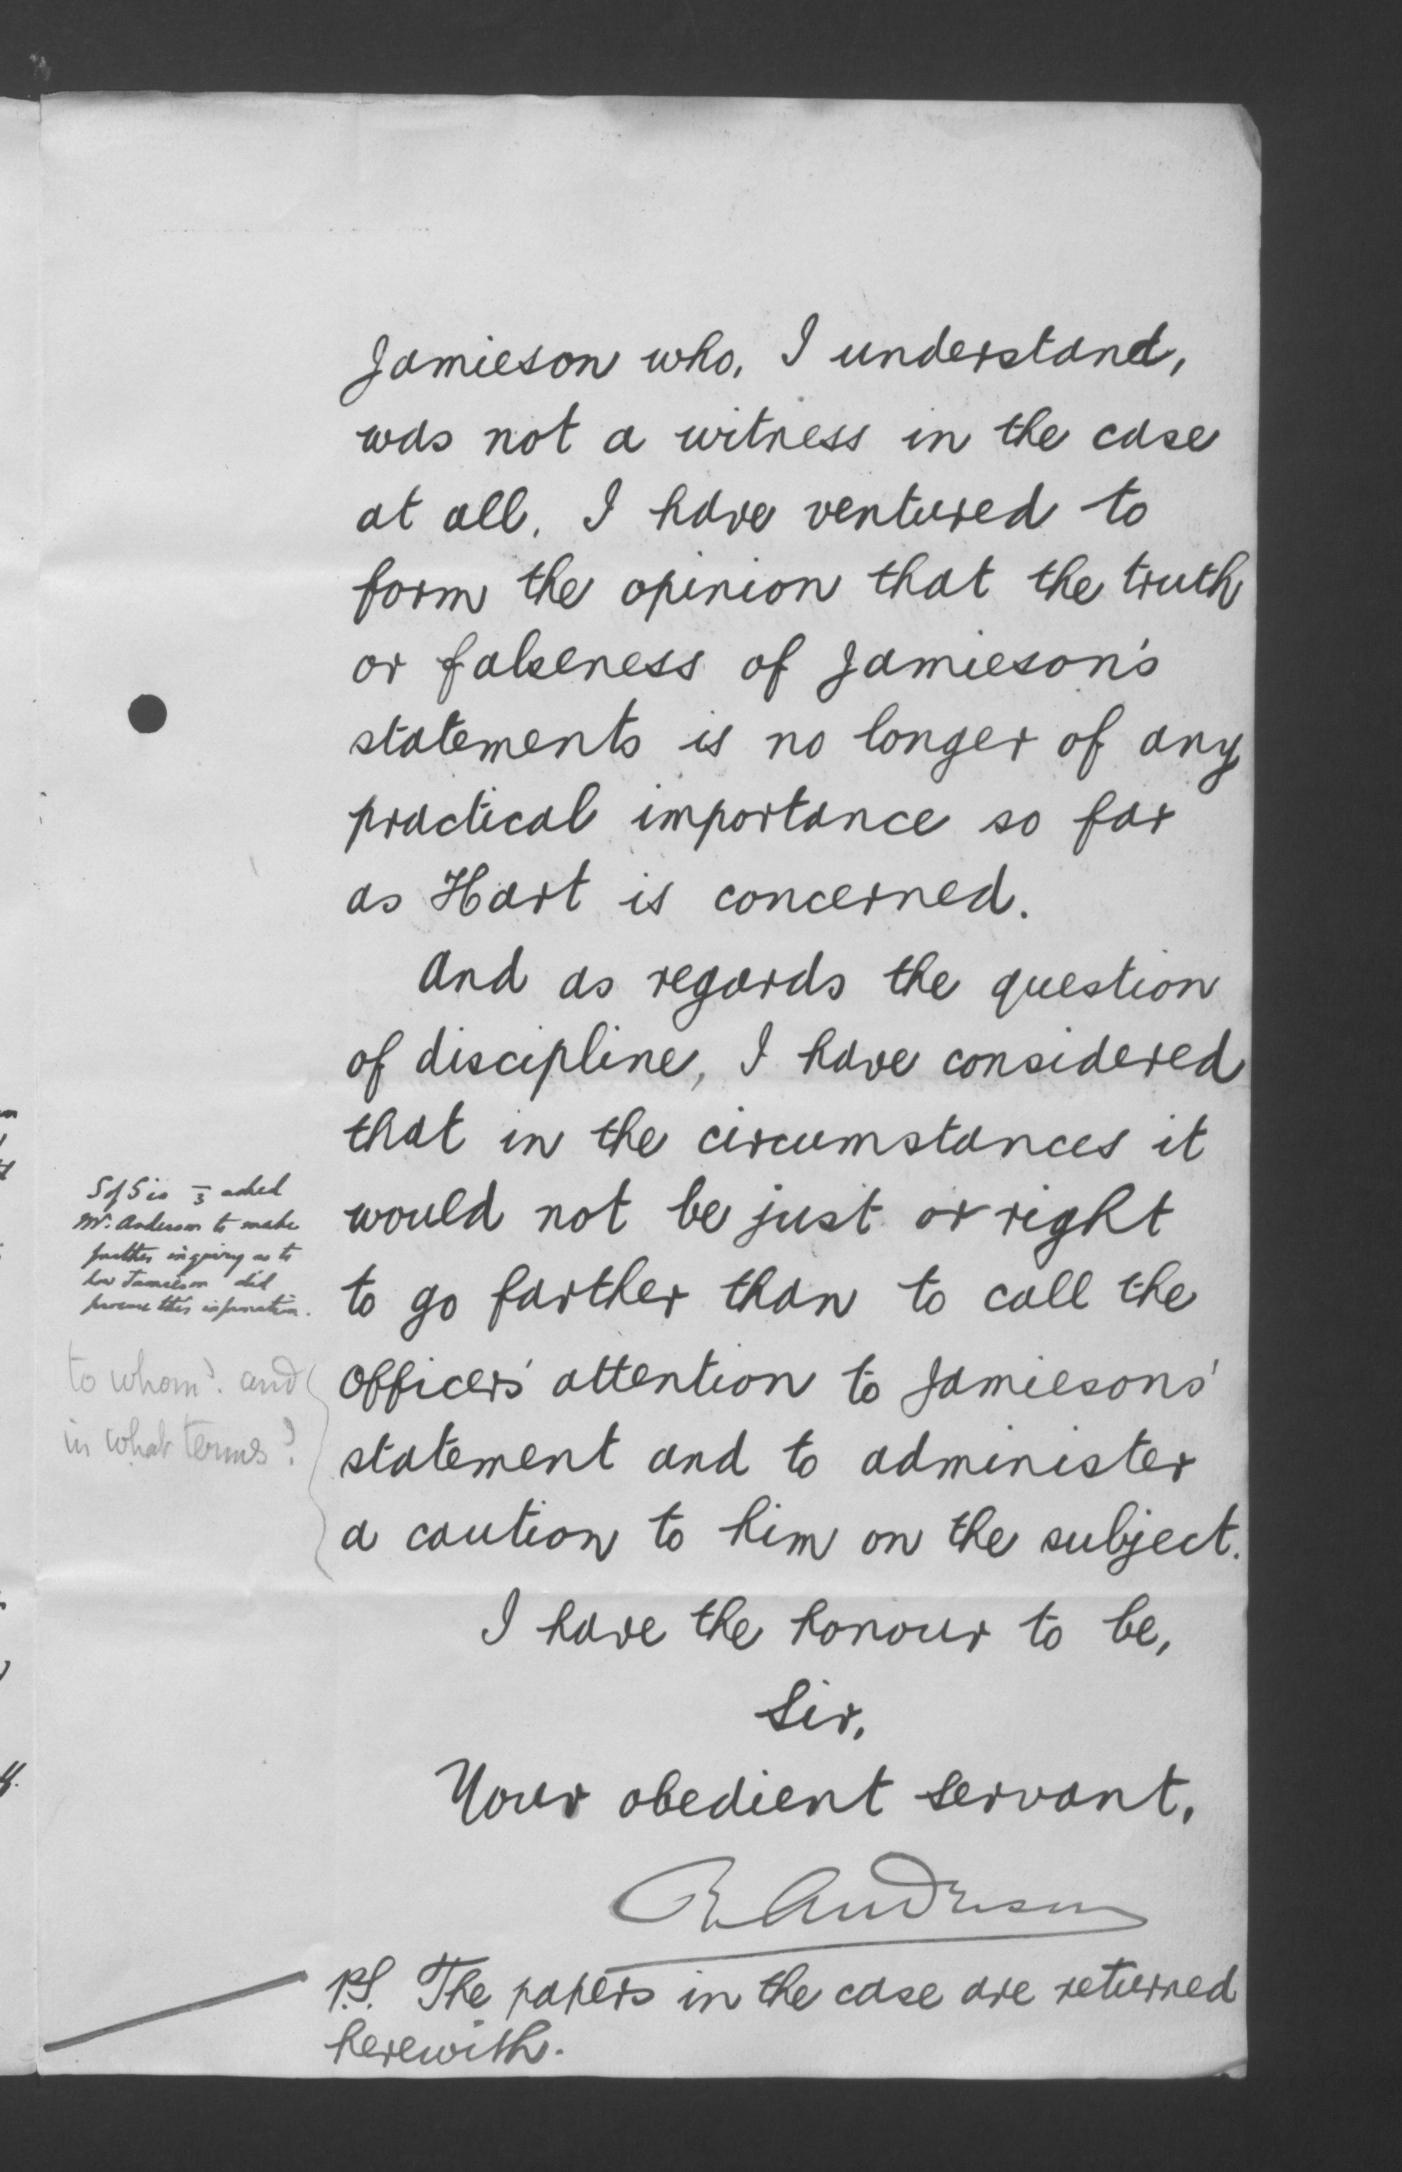 Jamieson who, I understand,
was not a witness in the case
at all. I have ventured to
form the opinion that the truth
or falseness of Jamieson's
statements is no longer of any
practical importance so far
as Hart is concerned.
And as regards the question
of discipline, I have considered
that in the circumstances it
would not be just or right
to go farther than to call the
Officers' attention to Jamiesons'
statement and to administer
a caution to him on the subject.
I have the honour to be,
Sir,
Your obedient Servant,
R Anderson
P.S. The papers in the case are returned
herewith.
S of S in asked
Mr. Anderson to make
further inquiry as to
how Jamieson did
procure this information.
to whom? and
in what terms?